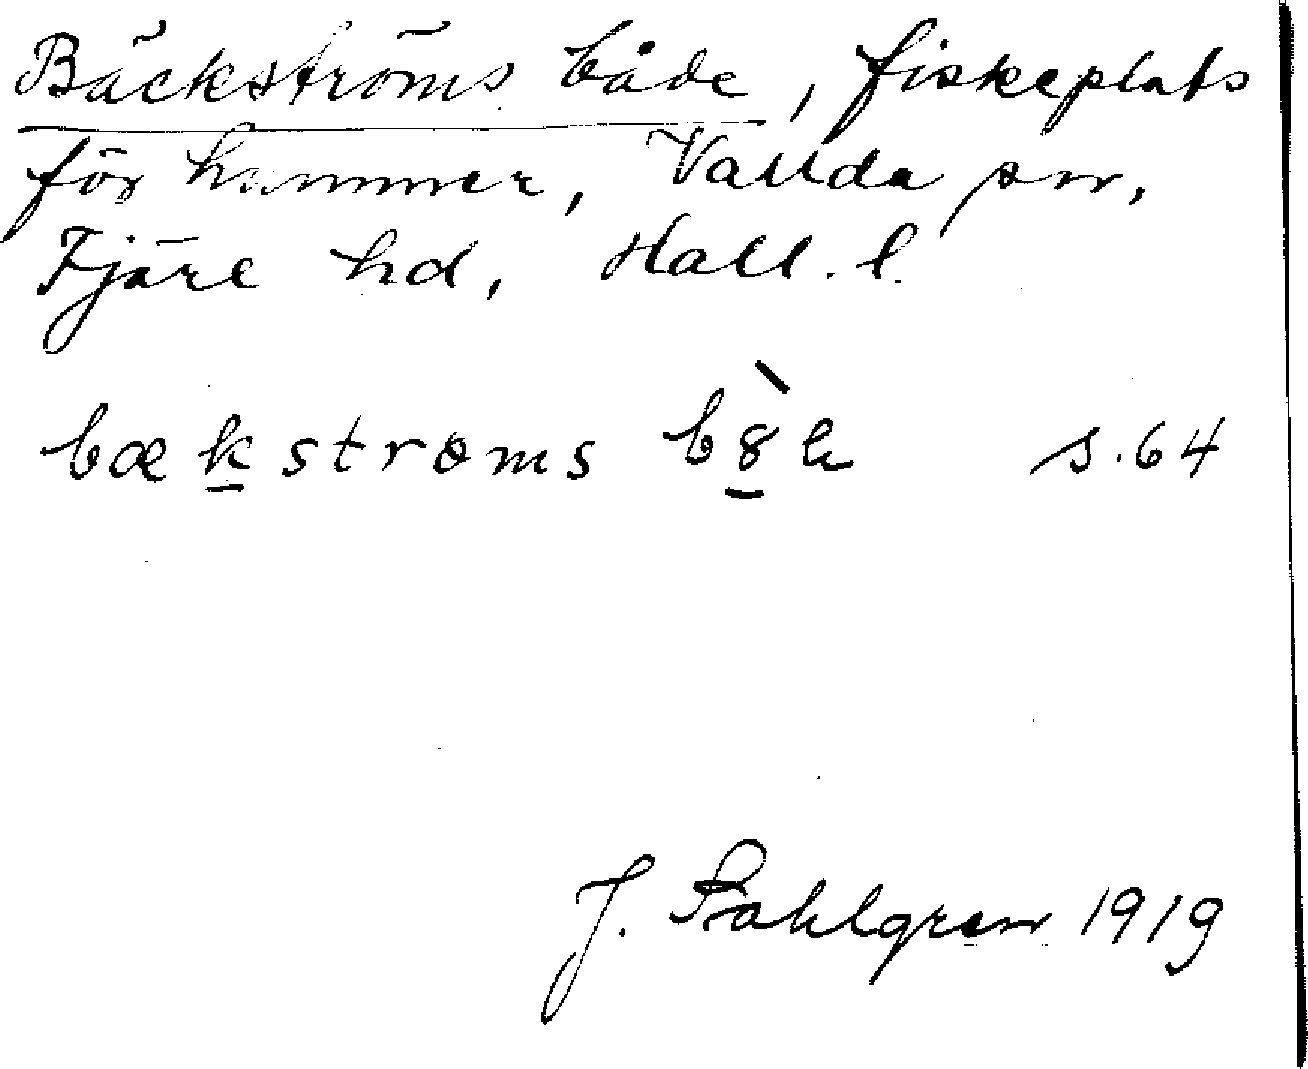 Bäckströms både, fiskeplats
för hummer, Vallda sn,
Fjäre hd, Hall. l.
bækstrøms s. 64
J. Sahlgren 1919